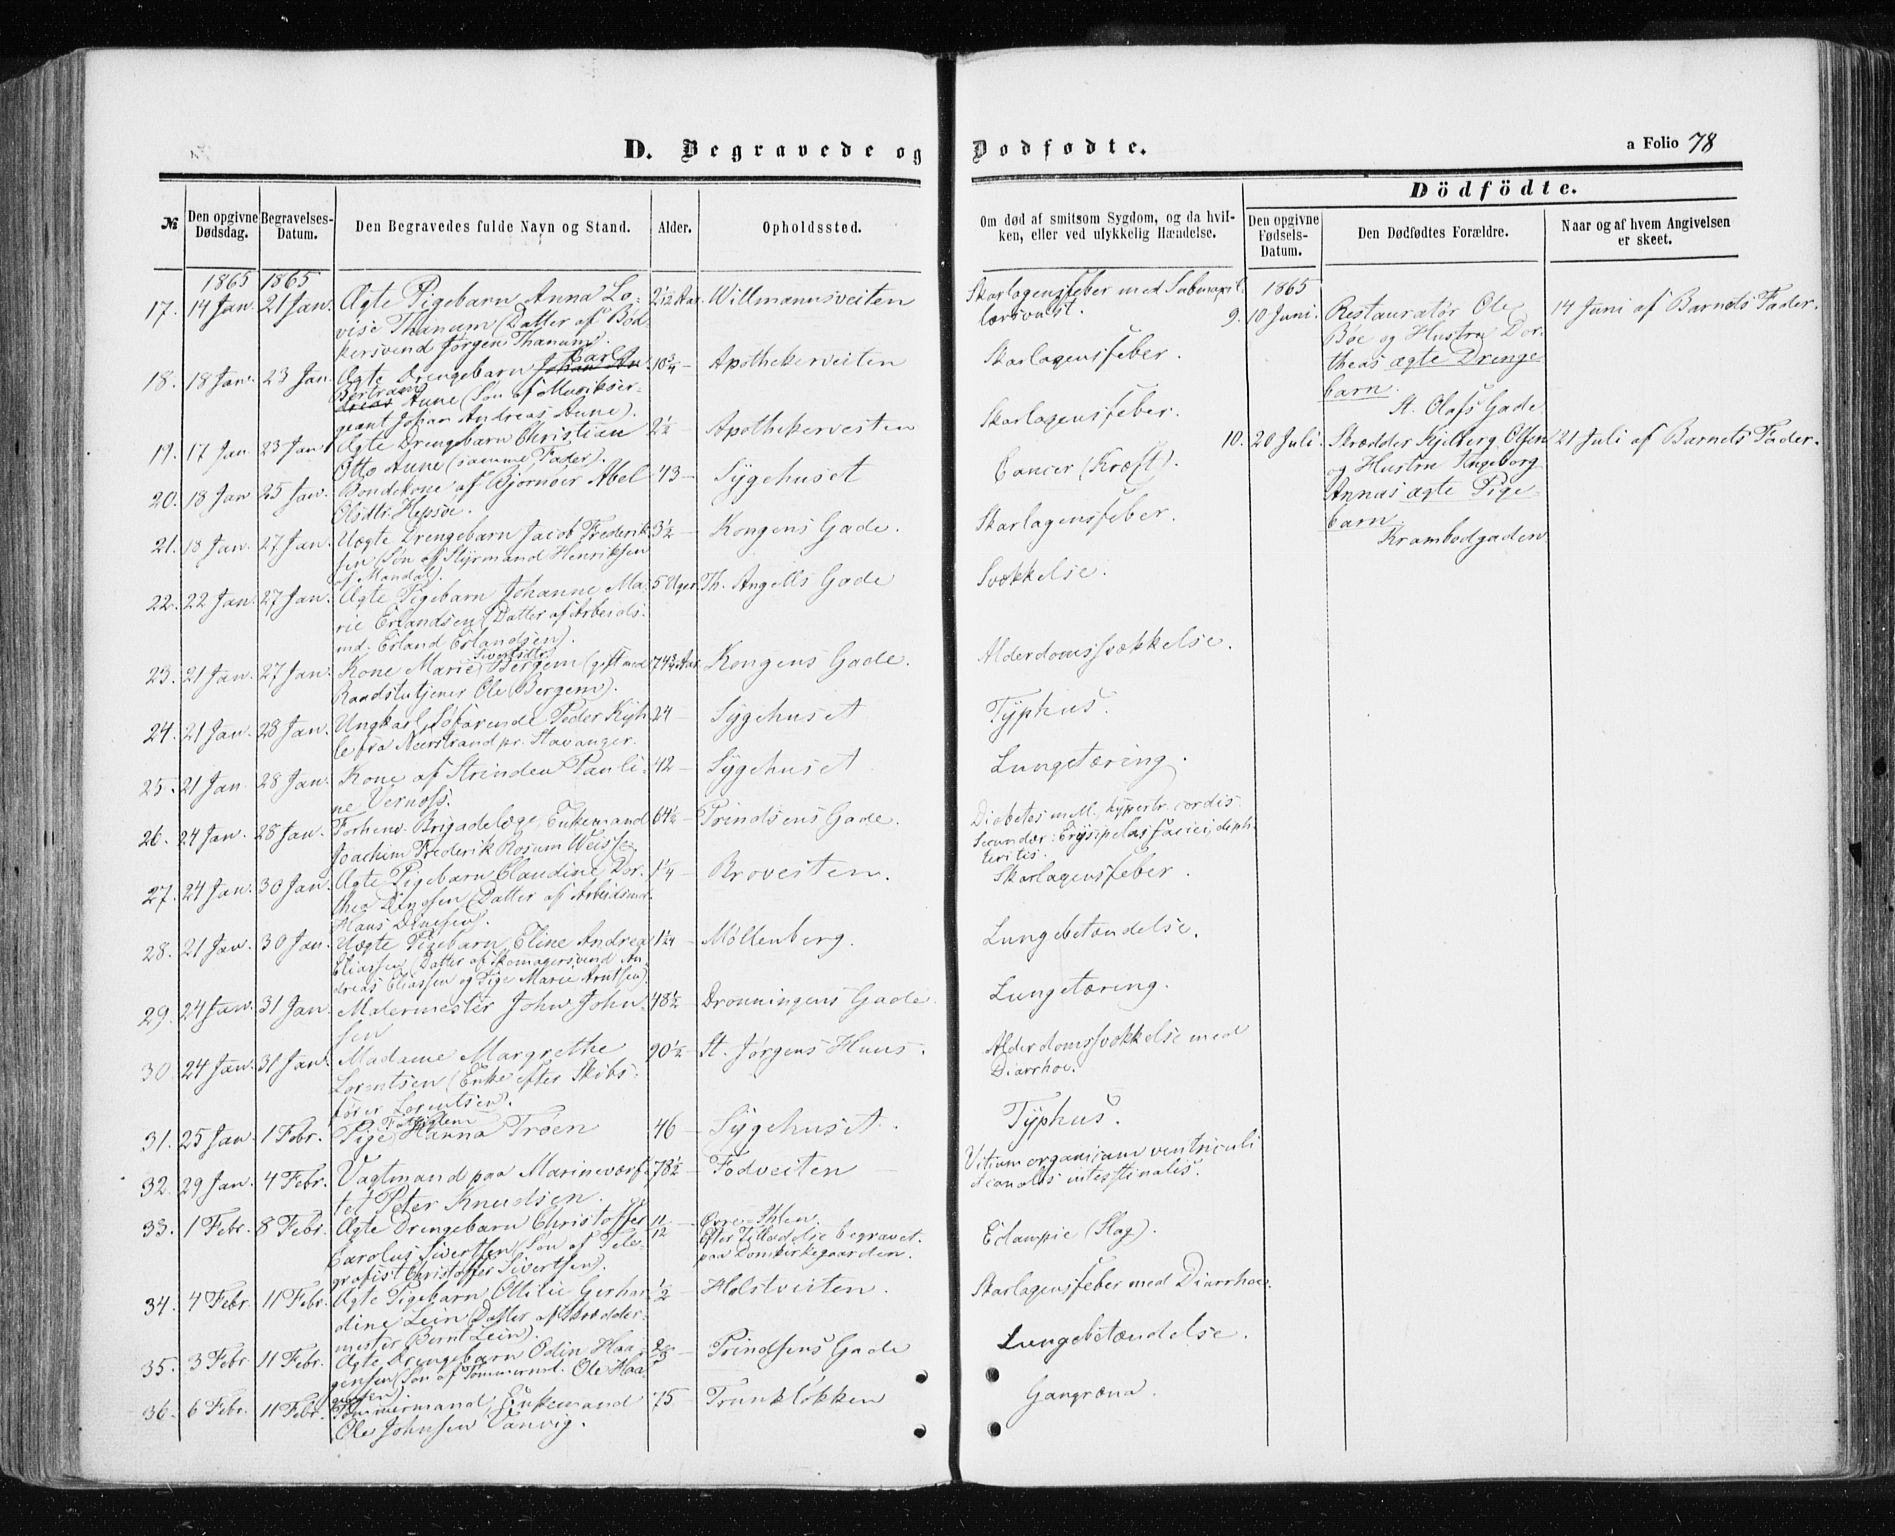 D. Begravede og Dödfødte.
a Folio 78
Dödfödte.
№
Den opgivne Dødsdag.
Begravelses-Datum.
Den Begravedes fulde Navn og Stand.
Alder.
Opholdssted.
Om død af smitsom Sygdom, og da hvilken, eller ved ulykkelig Hændelse.
Den opgivne Fødsels-Datum.
Den Dødfødtes Forældre.
Naar og af hvem Angivelsen er skeet.
1865 1865
17. 14 Jan. 21 Jan. Ægte Pigebarn Anna Lo- Aar Willmannsveiten Skarlagensfeber med Submaxil-
vise Thanum (Datter af Bød-
kersvend Jørgen Thanum.
18. 18 Jan. 23 Jan. Ægte Drengebarn Carl 10 3/4 - Apothekerveiten Skarlagensfeber.
Bertram Aune (Søn af Musikser-
geant Johan Andreas Aune).
19. 17 Jan. 23 Jan. Ægte Drengebarn Christian 2 1/2 - Apothekerveiten Skarlagensfeber.
Otto Aune (samme Fader).
20. 18 Jan 25 Jan. Bondekone af Bjørnør Abel 43 - Sygehuset Cancer (Kræft).
Olsdtr. Hepsøe.
21. 18 Jan. 27 Jan. Uægte Drengebarn Jacob Frederik- 3 1/2 - Kongens Gade. Skarlagensfeber.
sen (Søn af Styrmand Henriksen
af Mandal).
22. 22 Jan. 27 Jan. Ægte Pigebarn Johanne Ma- 5 Uger Th. Angells Gade Svækkelse.
rie Erlandsen (Datter af Arbeids-
md. Erland Erlandsen).
23. 21 Jan. 27 Jan. Kone Marie Sivertsdtr. Bergem (gift med 74 3/4 Aar Kongens Gade. Alderdomssvækkelse.
Raadstutjener Ole Bergem).
24. 21 Jan. 28 Jan. Ungkarl, Søfarende Peder Kyh- 24 - Sygehuset Typhus.
le fra Neerstrand pr. Stavanger.
25. 21 Jan. 28 Jan. Kone af Strinden Pauli- 42 - Sygehuset Lungetæring.
ne Vernoss.
26. 24 Jan. 28 Jan. Forhenv. Brigadelæge, Enkemand 64 1/2 - Prindsens Gade. Diabetes mell., hypertr. cordis.
Joachim Frederik Rosum Weisse. Secundær: Erysipelas faciei, diph-
teritis.
27. 24 Jan. 30 Jan. Ægte Pigebarn Claudine Dor- 1 1/4 - Broveiten. Skarlagensfeber.
thea Dinesen (Datter af Arbeidsmd.
Hans Dinesen).
28. 21 Jan. 30 Jan. Uægte Pigebarn Eline Andrea 1 1/4 - Möllenberg. Lungebetændelse.
Eliassen (Datter af Skomagersvend An-
dreas Eliassen og Pige Marie Arntsen).
29. 24 Jan. 31 Jan. Malermester John John- 48 1/2 - Dronningens Gade. Lungetæring.
sen
30. 24 Jan. 31 Jan. Madame Margrethe 90 1/2 - St. Jørgens Huus. Alderdomssvækkelse med
Lorentsen (Enke efter Skibs- Diarrhoe.
fører Lorentsen).
31. 25 Jan. 1 Febr. Pige Hanna Trøen 46 - Sygehuset. Typhus.
32. 29 Jan. 4 Febr. Vagtmand paa Marineværf- 78 1/2 - Fodveiten - Vitium organicum ventriculi
tet Peter Knudsen. & canalis intestinalis.
33. 1 Febr. 8 Febr. Ægte Drengebarn Christoffer 11/12 - Øvre-Ihlen. Eclampsie (Slag).
Carolus Sivertsen (Søn af Tele- Efter Tilladelse begravet
grafist Christoffer Sivertsen). paa Domkirkegaarden.
34. 4 Febr. 11 Febr. Ægte Pigebarn Ottilie Gerhar- 1/2 - Holstveiten. Skarlagensfeber med Diarrhoe.
dine Lein (Datter af Skrædder-
mester Bernt Lein).
35. 3 Febr. 11 Febr. Ægte Drengebarn Odin Haa- - Prindsens Gade Lungebetændelse.
gensen (Søn af Tømmermd. Ole Haa-
gensen).
36. 6 Febr. 11 Febr. Tømmermand, Enkemand 75 - Trunkløkken Gangræna.
Ole Johnsen Vanvig.
1865
9. 10 Juni. Restauratør Ole 14 Juni af Barnets Fader.
Böe og Hustru Dor-
theas ægte Drenge-
barn.
St. Olafs Gade
10. 20 Juli. Skrædder Kjelberg Olsen 21 Juli af Barnets Fader.
og Hustru Ingeborg
Annas ægte Pige-
barn.
Krambodgaden